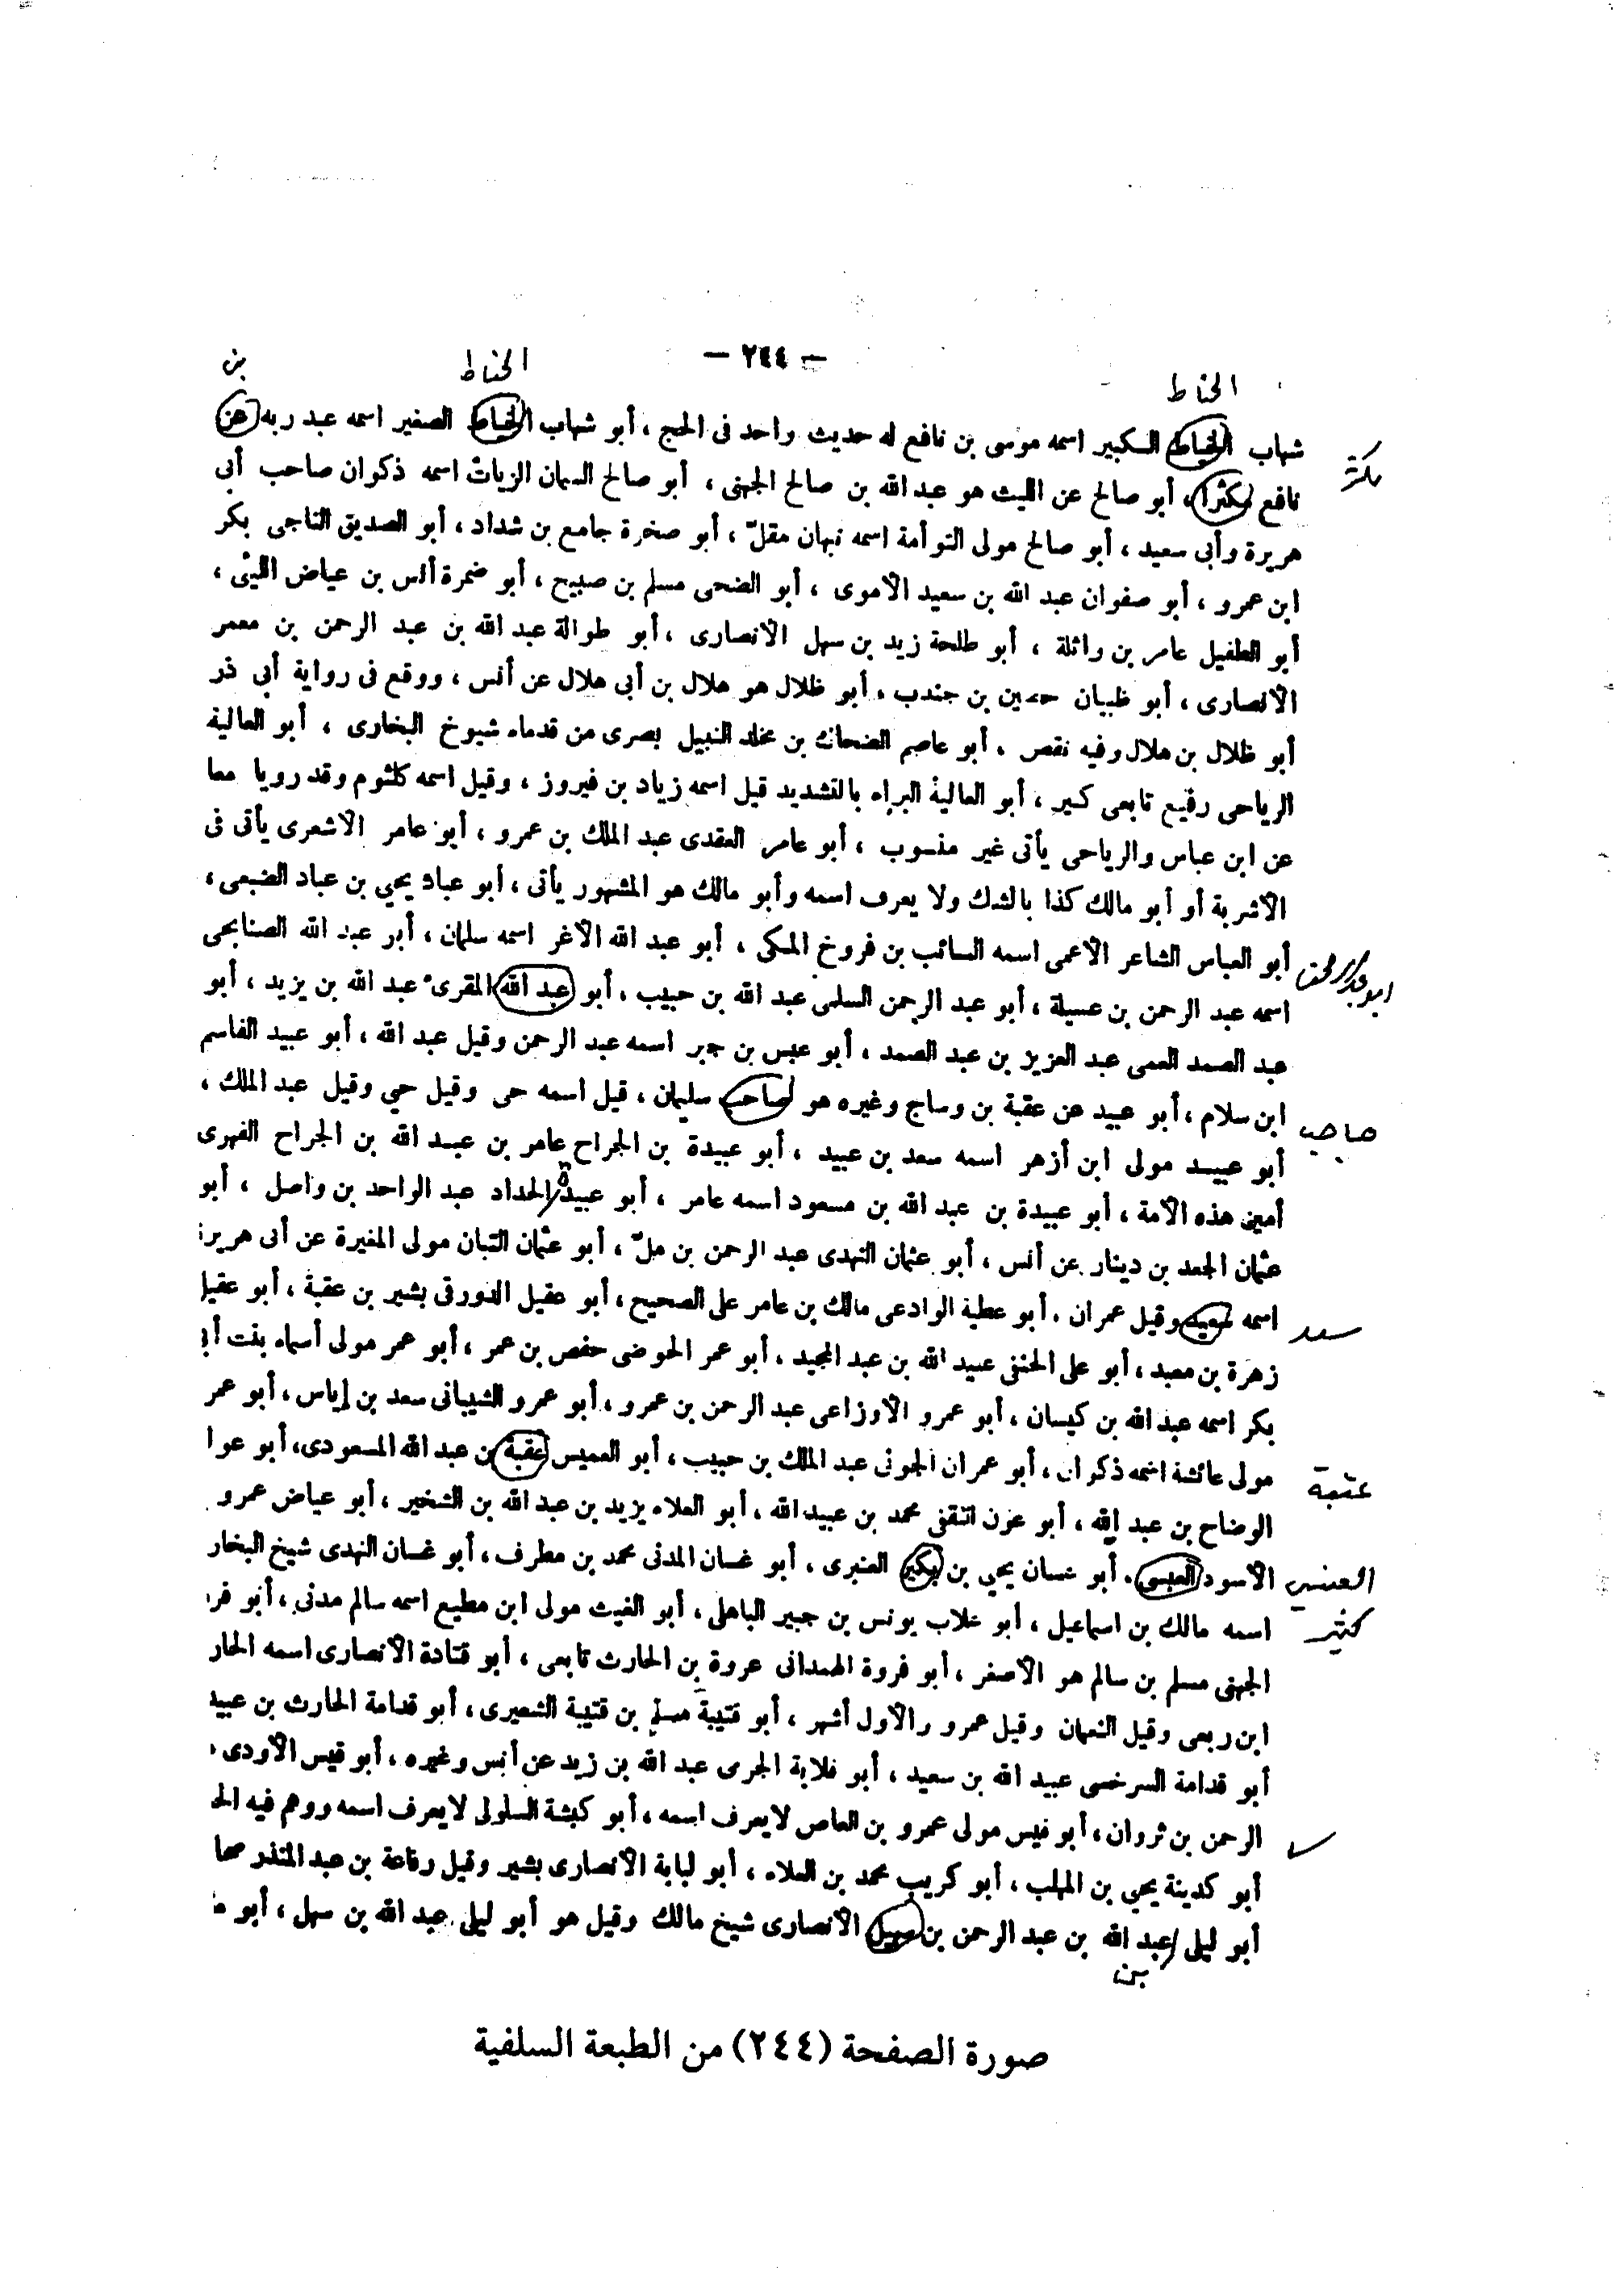 — ٢٤٤ —
الحناط
الحناط
بن
شهاب الخياط الكبير اسمه موسى بن نافع له حديث واحد فى الحج ، أبو شهاب الخياط الصغير اسمه عبد ربه عن
مكثر
نافع مكثرا ، أبو صالح عن الليث هو عبد الله بن صالح الجهنى ، أبو صالح السمان الزيات اسمه ذكوان صاحب أبى
هريرة وأبى سعيد ، أبو صالح مولى التوأمة اسمه نبهان مقلّ ، أبو صخرة جامع بن شداد ، أبو الصديق الناجى بكر
ابن عمرو ، أبو صفوان عبد الله بن سعيد الاموى ، أبو الضحى مسلم بن صبيح ، أبو ضمرة أنس بن عياض الليثى ،
أبو الطفيل عامر بن واثلة ، أبو طلحة زيد بن سهل الانصارى ، أبو طوالة عبد الله بن عبد الرحمن بن معمر
الانصارى ، أبو ظبيان حصين بن جندب ، أبو ظلال هو هلال بن أبى هلال عن أنس ، ووقع فى رواية أبى ذر
أبو ظلال بن هلال وفيه نقص ، أبو عاصم الضحاك بن مخلد النبيل بصرى من قدماء شيوخ البخارى ، أبو العالية
الرياحى رفيع تابعى كبير ، أبو العالية البراء بالتشديد قيل اسمه زياد بن فيروز ، وقيل اسمه كلثوم وقد رويا معا
عن ابن عباس والرياحى يأتى غير منسوب ، أبو عامر العقدى عبد الملك بن عمرو ، أبو عامر الاشعرى يأتى فى
الاشربة أو أبو مالك كذا بالشك ولا يعرف اسمه وأبو مالك هو المشهور يأتى ، أبو عباد يحي بن عباد الضبعى ،
أبو العباس الشاعر الاعمى اسمه السائب بن فروخ المكى ، أبو عبد الله الاغر اسمه سلمان ، أبو عبد الله الصنابحى
ابو عبد الرحمن
اسمه عبد الرحمن بن عسيلة ، أبو عبد الرحمن السلمى عبد الله بن حبيب ، أبو عبد الله المقرئ عبد الله بن يزيد ، أبو
عبد الصمد العمى عبد العزيز بن عبد الصمد ، أبو عبس بن جبر اسمه عبد الرحمن وقيل عبد الله ، أبو عبيد القاسم
ابن سلام ، أبو عبيد عن عقبة بن وساج وغيره هو صاحب سليمان ، قيل اسمه حى وقيل حيي وقيل عبد الملك ،
حاجب
أبو عبيد مولى ابن أزهر اسمه سعد بن عبيد ، أبو عبيدة بن الجراح عامر بن عبد الله بن الجراح الفهرى
أمين هذه الامة ، أبو عبيدة بن عبد الله بن مسعود اسمه عامر ، أبو عبيدة الحداد عبد الواحد بن واصل ، أبو
عثمان الجعد بن دينار عن أنس ، أبو عثمان النهدى عبد الرحمن بن ملّ ، أبو عثمان التبان مولى المغيرة عن أبى هريرة
سعد
اسمه سعيد وقيل عمران ، أبو عطية الوادعى مالك بن عامر على الصحيح ، أبو عقيل الدورقى بشير بن عقبة ، أبو عقيل
زهرة بن معبد ، أبو على الحنفى عبيد الله بن عبد المجيد ، أبو عمر الحوضى حفص بن عمر ، أبو عمر مولى أسماء بنت أبى
بكر اسمه عبد الله بن كيسان ، أبو عمرو الاوزاعى عبد الرحمن بن عمرو ، أبو عمرو الشيبانى سعد بن إياس ، أبو عمر
عتبة
مولى عائشة اسمه ذكوان ، أبو عمران الجونى عبد الملك بن حبيب ، أبو العميس عقبة بن عبد الله المسعودى ، أبو عوا
الوضاح بن عبد الله ، أبو عون الثقفى محمد بن عبيد الله ، أبو العلاء يزيد بن عبد الله بن الشخير ، أبو عياض عمرو
العنسي
الاسود العبسى ، أبو غسان يحي بن بكير العنبرى ، أبو غسان المدنى محمد بن مطرف ، أبو غسان النهدى شيخ البخار
كثير
اسمه مالك بن اسماعيل ، أبو غلاب يونس بن جبير الباهلى ، أبو الغيث مولى ابن مطيع اسمه سالم مدنى ، أبو فر
الجهنى مسلم بن سالم هو الاصغر ، أبو فروة الهمدانى عروة بن الحارث تابعى ، أبو قتادة الانصارى اسمه الحار
ابن ربعى وقيل النعمان وقيل عمرو والاول أشهر ، أبو قتيبة مسلم بن قتيبة الشعيرى ، أبو قدامة الحارث بن عبيد
أبو قدامة السرخسى عبيد الله بن سعيد ، أبو قلابة الجرمى عبد الله بن زيد عن أنس وغيره ، أبو قيس الاودى
الرحمن بن ثروان ، أبو قيس مولى عمرو بن العاص لا يعرف اسمه ، أبو كبشة السلولى لا يعرف اسمه ووهم فيه الح
أبو كدينة يحي بن المهلب ، أبو كريب محمد بن العلاء ، أبو لبابة الانصارى بشير وقيل رفاعة بن عبد المنذر صحا
أبو ليلى عبد الله بن عبد الرحمن بن سهيل الانصارى شيخ مالك وقيل هو أبو ليلى عبد الله بن سهل ، أبو
بن
صورة الصفحة (٢٤٤) من الطبعة السلفية